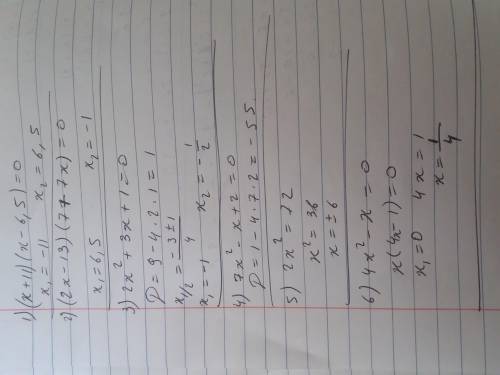 1) (x+11)(x-6,5)=0
x₁=-11 x₂=6,5
2) (2x-13)(7+7x)=0
x₁=6,5 x₂=-1
3) 2x²+3x+1=0
D=9-4·2·1=1
x₁/₂=(-3±1)/4
x₁=-1 x₂=-1/2
4) 7x²-x+2=0
D=1-4·7·2=-55
5) 2x²=72
x²=36
x=±6
6) 4x²-x=0
x(4x-1)=0
x₁=0 4x=1
x=1/4